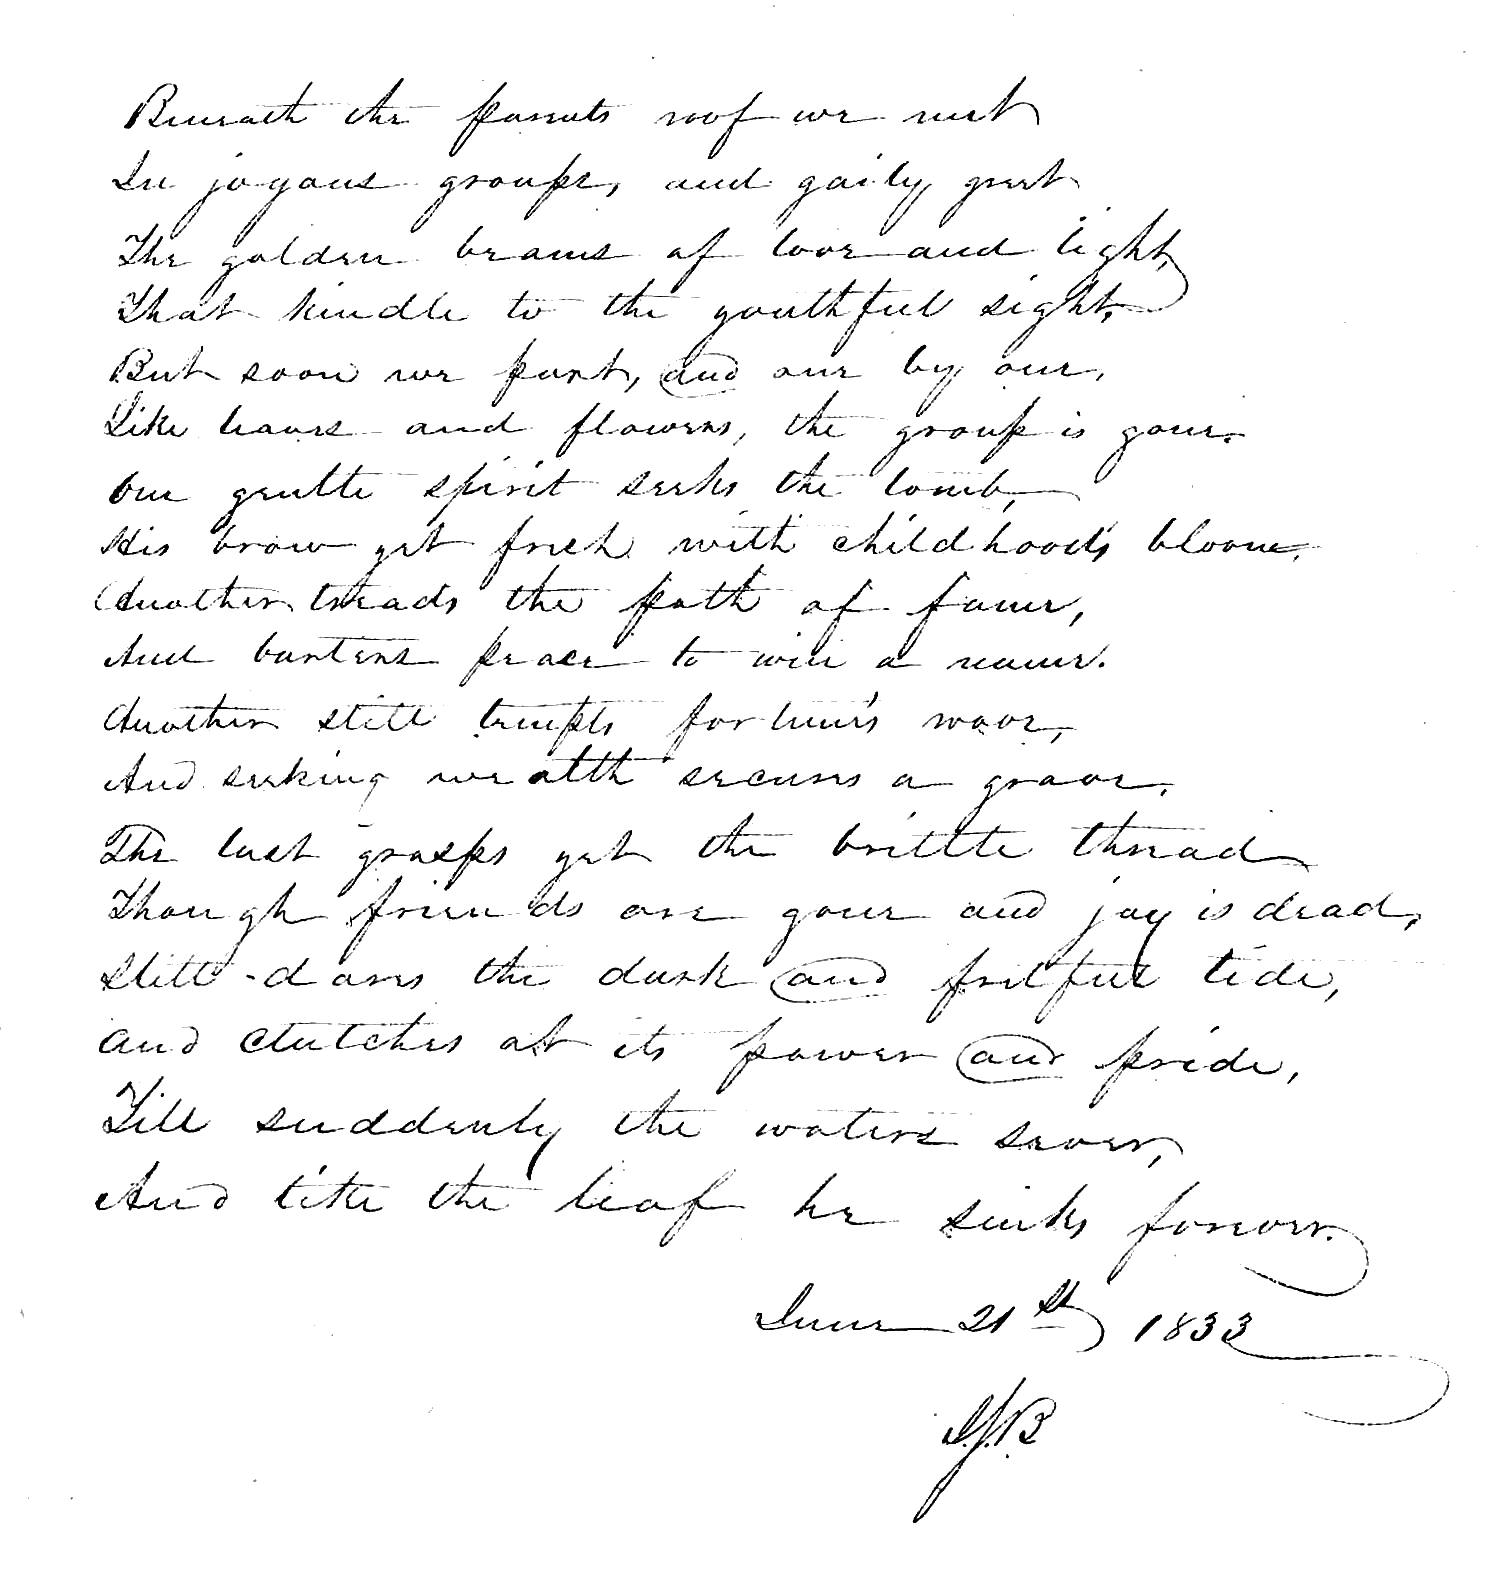 Beneath the parents roof we meet
In joyous groups, and gaily greet
The golden beams of love and light,
That kindle to the youthful sight.
But soon we part, and one by one,
Like leaves and flowers, the group is gone.
One gentle spirit seeks the tomb,
His brow yet fresh with childhood's bloom.
Another treads the path of fame,
And barters peace to win a name.
Another still tempts fortune's wave,
And seeking wealth secures a grave.
The last grasps yet the brittle thread
Though friends are gone and joy is dead,
Still dares the dark and fretful tide,
and clutches at its power and pride,
Till suddenly the waters sever,
And like the leaf he sinks forever.
June 21st 1833